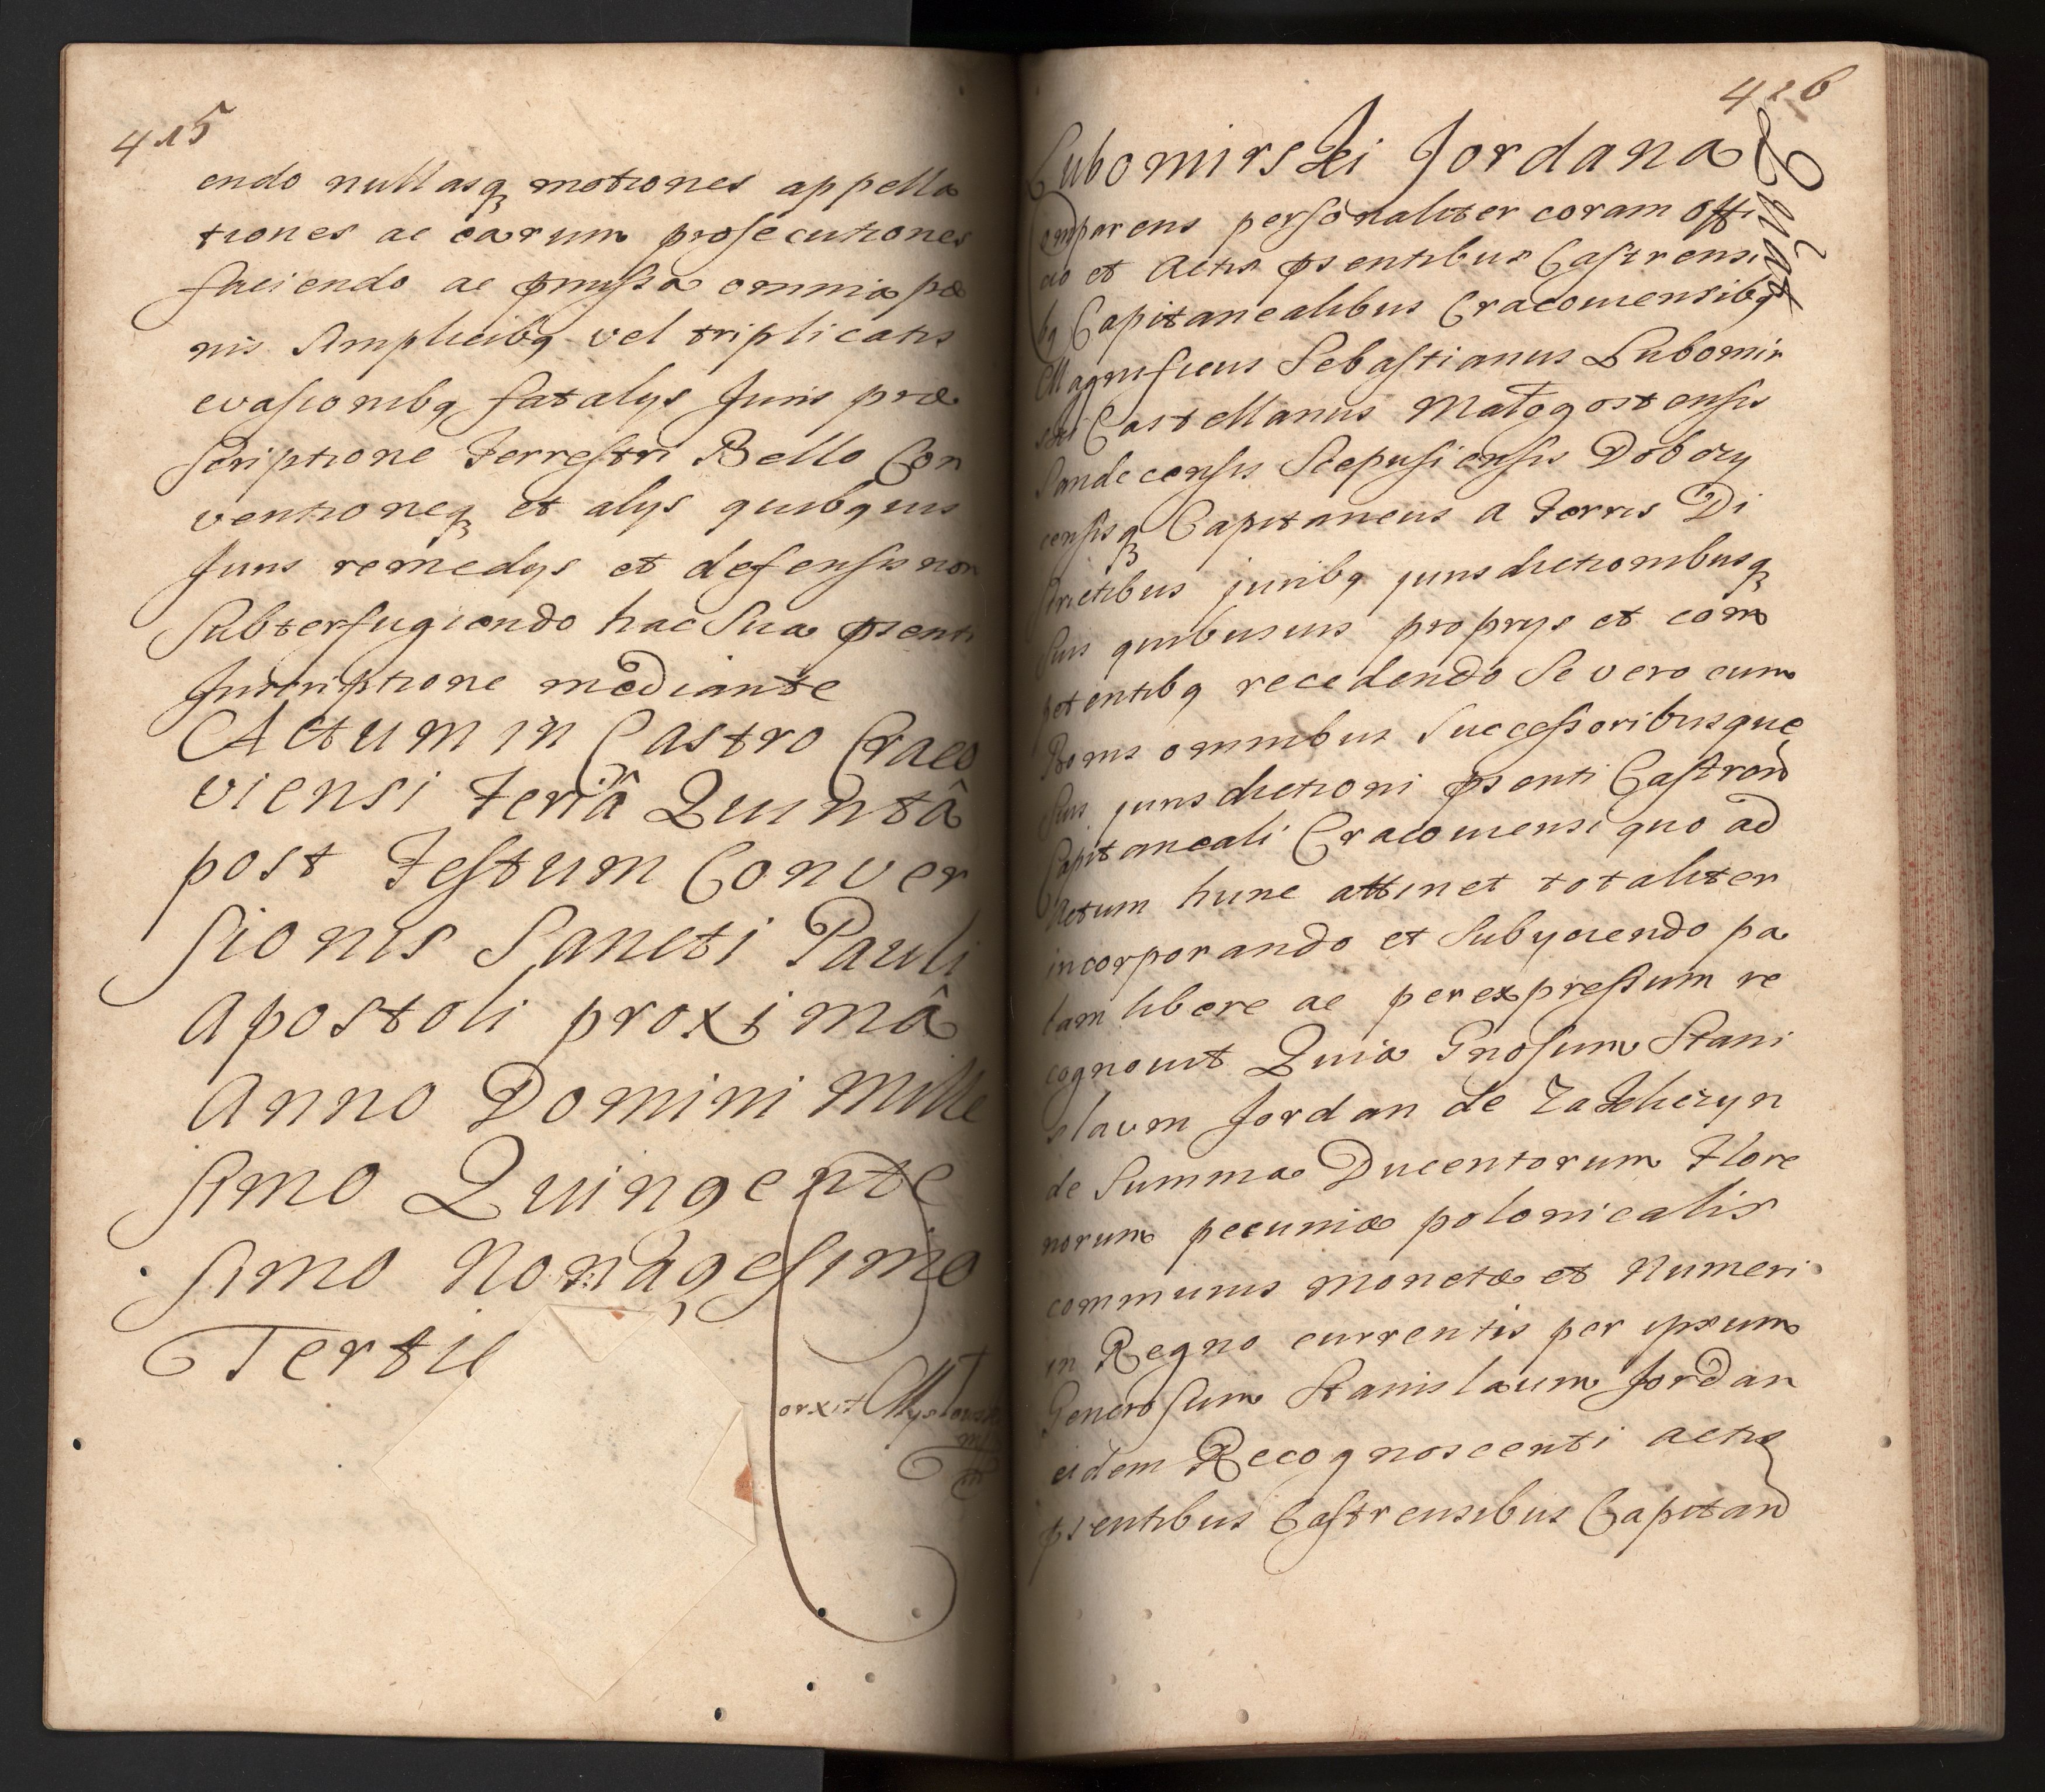 415
endo nullasq motiones appella
tiones ac earum prosecutiones
faciendo ac pmissa omnia pæ
nis simplicibq vel triplicatis
evasionibq fatalys Juris præ
scriptione Terrestri Bello Con
ventioneq et alys quibqvis
Juris remedys et defensis non
Subterfugiendo hac Sua psenti
Inscriptione mediante
Actum in Castro Craco
viensi Feriâ Quintâ
post Festum Conver
sionis Sancti Pauli
Apostoli proximâ
Anno Domini Mille
simo Quingente
simo Nonagesimo
Tertii
416
Lubomirski Jordana
Quietat
Comparens personaliter coram Offi
cio et Actis psentibus Castrensi
bq Capitanealibus Cracouiensibq
Magnificus Sebastianus Lubomir
ski Castellanus Małogostensis
Sandecensis Scepusiensis Dobczy
censisq Capitaneus a Terris Di
strictibus juribq jurisdictionibusq
Suis quibusuis proprys et com
petentibq recedendo Se vero cum
Bonis omnibus Successoribusque
Suis jurisdictioni psenti Castren
Capitaneali Cracouiensi quo ad
Actum hunc attinet totaliter
incorporando et Subyciendo pa
lam libere ac per expressum re
cognouit Quia Gnosum Stani
slaum Jordan de Zakliczyn
de Summa Ducentorum Flore
norum pecuniæ polonicalis
communis monetæ et Numeri
in Regno currentis per ipsum
Generosum Stanislaum Jordan
eidem Recognoscenti actis
psentibus Castrensibus Capitan